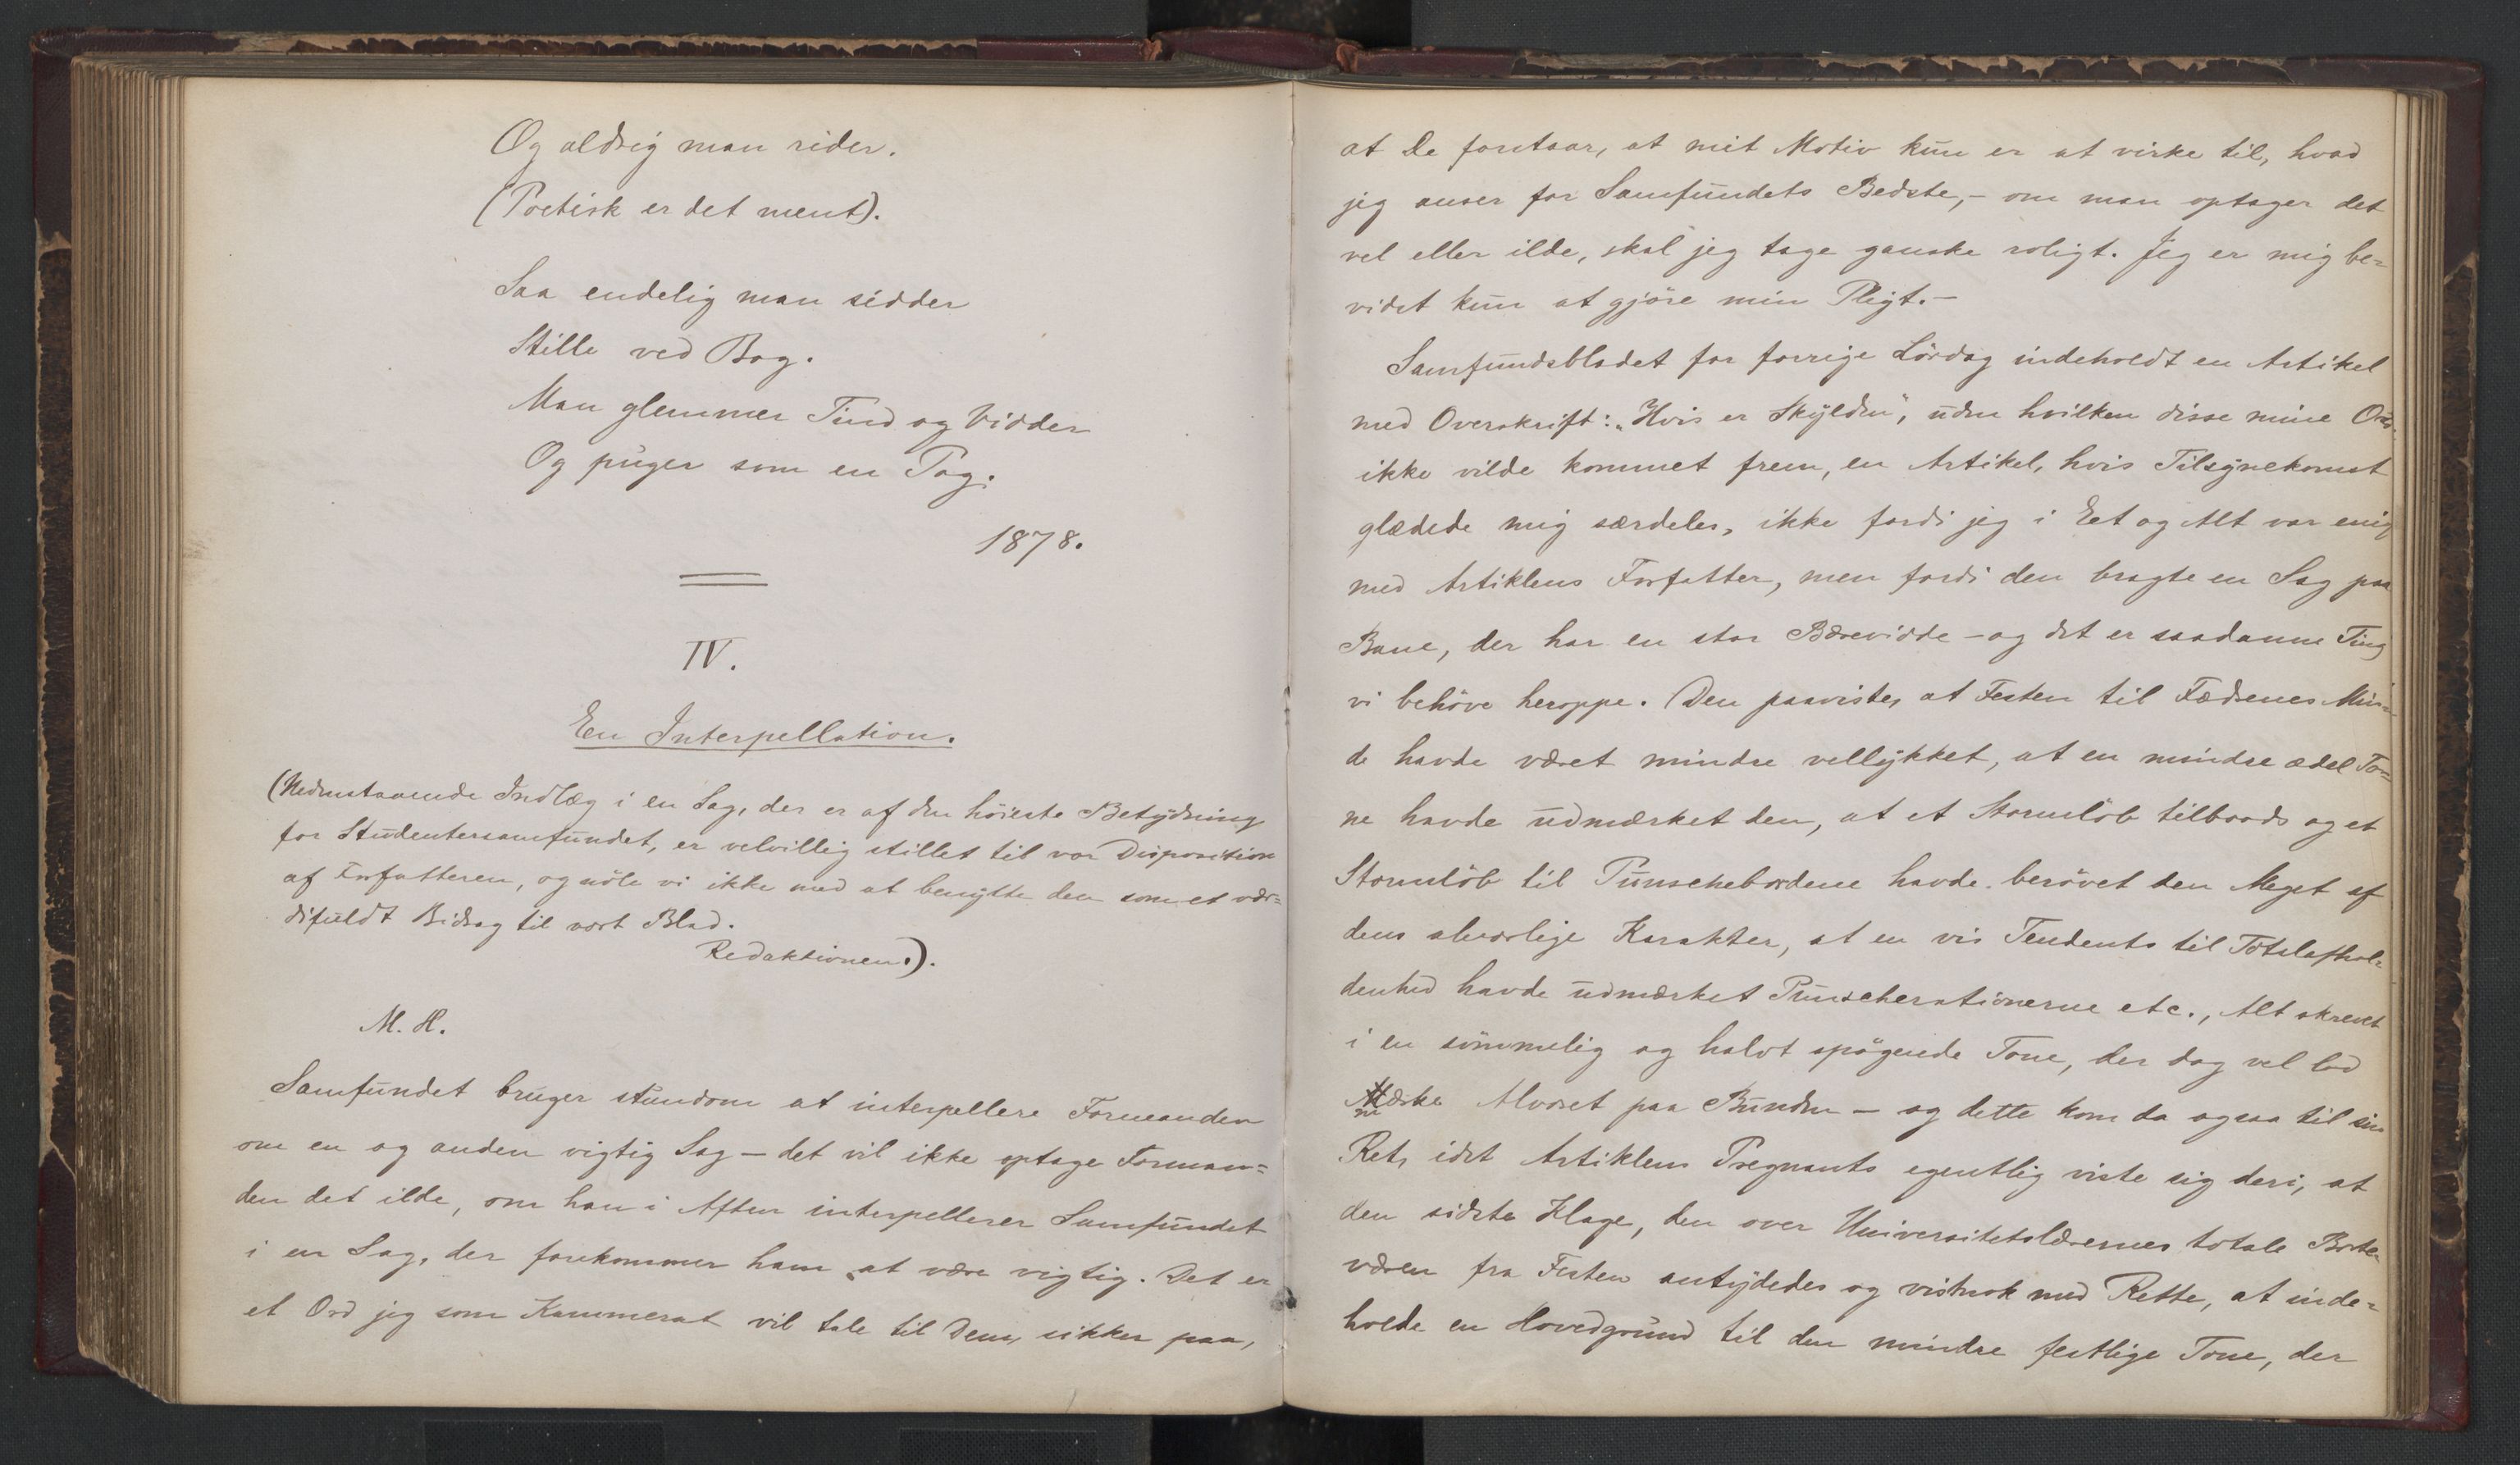 Og aldrig man rider.
(Poetisk er det ment).
Saa endelig man sidder
Stille ved Bog.
Man glemmer Tind og Vidder
Og puger som en Pog.
1878.
IV.
En Interpellation.
(Nedenstaaende Indlæg i en Sag, der er af den høieste Betydning
for Studentersamfundet, er velvillig stillet til vor Disposition
af Forfatteren, og nöle vi ikke med at benytte den som et vær=
difuldt Bidrag til vort Blad.
Redaktionen.).
M. H.
Samfundet bruger stundom at interpellere Formanden
om en og anden vigtig Sag – det vil ikke optage Forman=
den det ilde, om han i Aften interpellerer Samfundet
i en Sag, der forekommer ham at være vigtig. Det er
et Ord jeg som Kammerat vil tale til Dem, sikker paa,
at De forstaar, at mit Motiv kun er at virke til, hvad
jeg anser for Samfundets Bedste, – om man optager det
vel eller ilde, skal jeg tage ganske roligt. Jeg er mig be=
vidst kun at gjöre min Pligt. –
Samfundsbladet for forrige Lördag indeholdt en Artikel
med Overskrift: „Hvis er Skylden“, uden hvilken disse mine Ord
ikke vilde kommet frem, en Artikel, hvis Tilsynekomst
glædede mig særdeles, ikke fordi jeg i Eet og Alt var enig
med Artiklens Forfatter, men fordi den bragte en Sag paa
Bane, der har en stor Bærevidde – og det er saadanne Ting
vi behöve heroppe. Den paaviste, at Festen til Fædrenes Min=
de havde været mindre vellykket, at en mindre ædel To=
ne havde udmærket den, at et Stormlöb tilbords og et
Stormlöb til Punschebordene havde berövet den Meget af
dens alvorlige Karakter, at en vis Tendents til Totalafhol=
denhed havde udmærket Punscherationerne etc., Alt skrevet
i en sömmelig og halvt spögende Tone, der dog vel lod
mærke Alvoret paa Bunden – og dette kom da ogsaa til sin
Ret, idet Artiklens Pregnants egentlig viste sig deri, at
den sidste Klage, den over Universitetslærernes totale Borte=
væren fra Festen antydedes og vistnok med Rette, at inde=
holde en Hovedgrund til den mindre festlige Tone, der